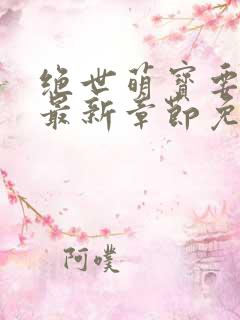 绝世萌宝要
最新章节免
阿噗